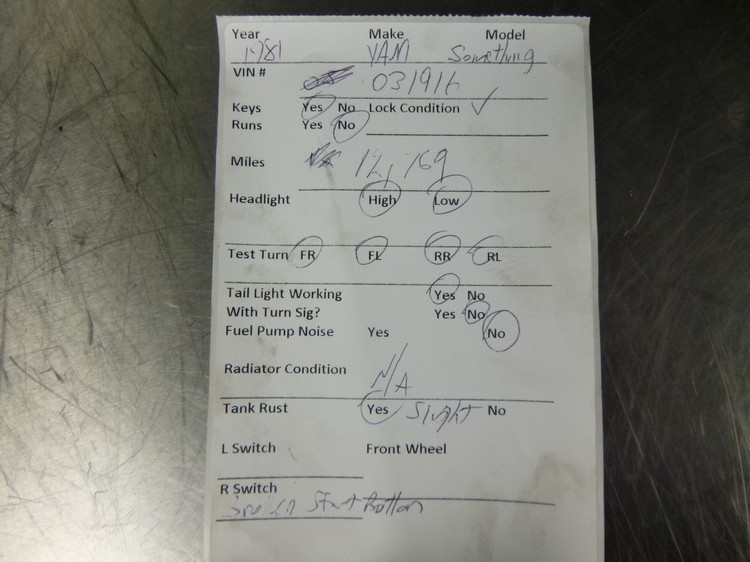 Year Make Model
1981 YAM Something
VIN #
031916
Keys Yes No Lock Condition ✓
Runs Yes No
Miles 12,769
Headlight High Low
Test Turn FR FL RR RL
Tail Light Working Yes No
With Turn Sig? Yes No
Fuel Pump Noise Yes No
Radiator Condition
N/A
Tank Rust Yes Slight No
L Switch Front Wheel
R Switch
Start Button